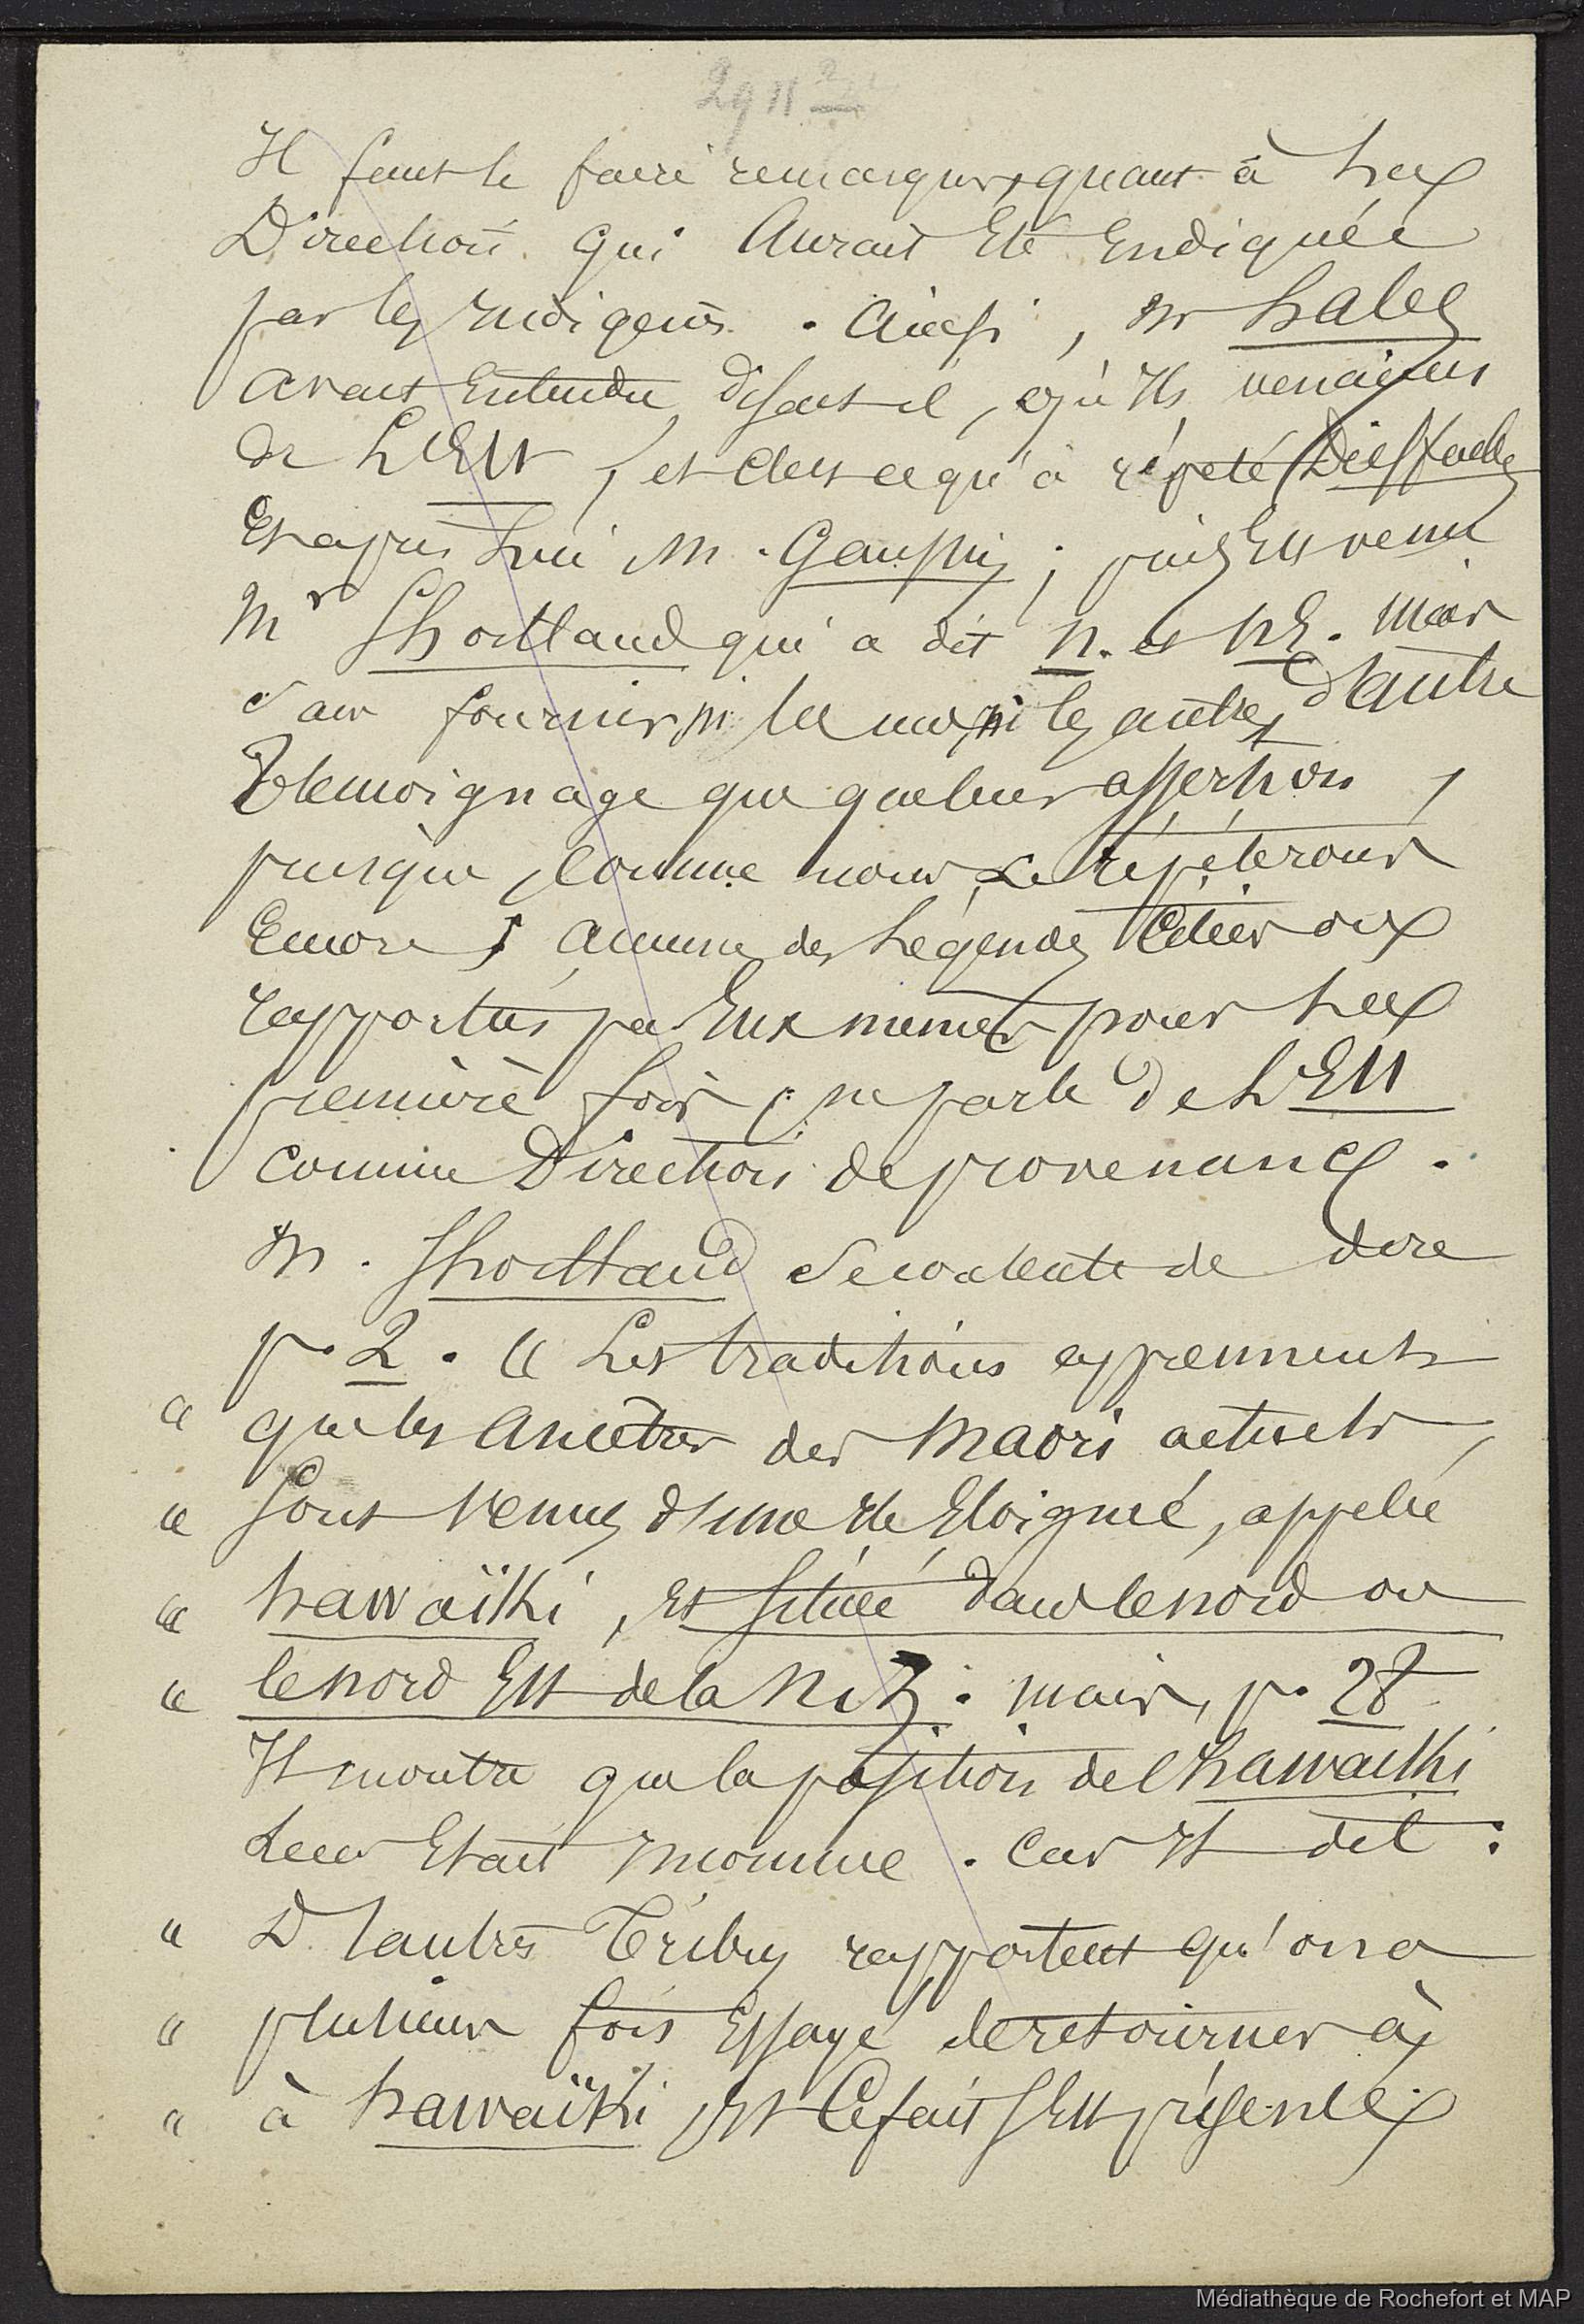 Il faut le faire remarquer, quant à la
Direction qui Aurait Eté Indiquée
par les Indigènes. Ainsi, Mr hale
avait Entendu, disait-il, qu'Ils venaient
de L'Est, et c'est ce qu'a répeté Dieffenbach
Et après Lui M. Gaussin ; puis Est venu
Mr Shortland qui a dit N. et NE. Mais
Sans fournir ni les uns, ni les autres, d'autre
Témoignage que que leur assertion,
puisque, Comme nous Le répéterons
Encore, Aucune des Légendes
rapportées par Eux mêmes pour La
première fois, ne parle de L'Est
comme Direction de provenance.
M. Shortland Se contente de dire
p. 2. « Les traditions apprennent
« que les Ancêtres des Maori actuels,
« Sont Venus d'une Ile Eloignée, appelée
« hawaïki, et Située dans le nord ou
« le nord Est de la N. Z. : mais, p. 28
Il montre que la position de l'hawaïki
Leur Etait Inconnue. Car Il dit :
« D'autres Tribus rapportent qu'on a
« plusieurs fois Essayé de retourner à
« à hawaïki, Et Ce fait S'Est présenté
Médiathèque de Rochefort et MAP